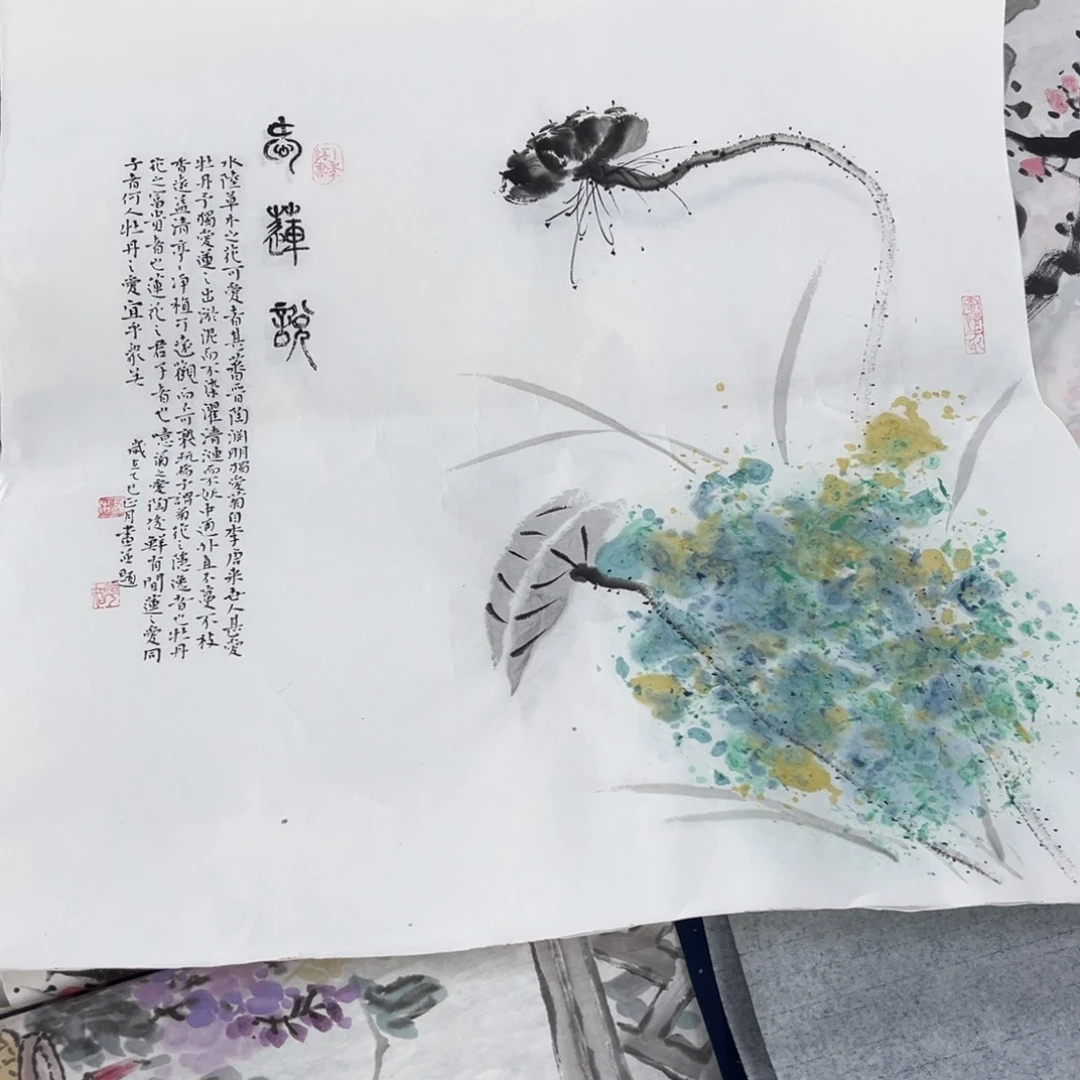 愛蓮說
水陸草木之花可愛者甚蕃晉陶淵明獨愛菊自李唐來世人甚愛
牡丹予獨愛蓮之出淤泥而不染濯清漣而不妖中通外直不蔓不枝
香遠益清亭亭净植可遠觀而不可褻玩焉予謂菊花之隱逸者也牡丹
花之富貴者也蓮花之君子者也噫菊之愛陶後鮮有聞蓮之愛同
予者何人牡丹之愛宜乎眾矣
歲在乙巳正月畫並題